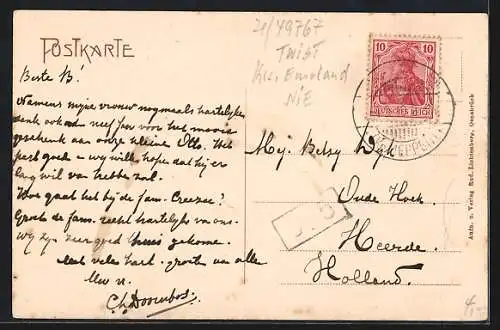 POSTKARTE
21/49767
TWIST
Krs. Emsland
NiE
10 10
DEUTSCHES REICH
MEPPEN
Beste B!
Namens mijne vrouw nogmaals hartelijken
dank ook aan neef Jan voor het mooie
geschenk aan onze kleine Otto. Het
past goed – wij willen hopen dat hij er
lang wil van hebben zal.
Hoe gaat het bij de fam.
Groet de fam. recht hartelijk van ons –
wij zijn zeer goed thuis gekomen.
Met vele hart. groeten van allen
Uw n.
Ch. Doorenbos.
Mej. Betsy D
Oude Hoek.
Heerde.
Holland.
Aufn. u. Verlag Rud. Lichtenberg, Osnabrück